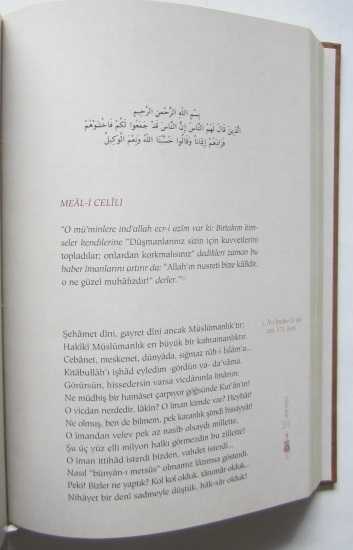 بِسْمِ اللهِ الرَّحْمٰنِ الرَّحِيمِ
اَلَّذِينَ قَالَ لَهُمُ النَّاسُ اِنَّ النَّاسَ قَدْ جَمَعُوا لَكُمْ فَاخْشَوْهُمْ
فَزَادَهُمْ اِيمَانًا وَقَالُوا حَسْبُنَا اللهُ وَنِعْمَ الْوَكِيلُ
MEÂL-İ CELÎLİ
"O mü'minlere ind'allah ecr-i azîm var ki: Birtakım kim-
seler kendilerine "Düşmanlarınız sizin için kuvvetlerini
topladılar; onlardan korkmalısınız" dedikleri zaman bu
haber îmanlarını artırır da: "Allah'ın nusreti bize kâfîdir,
o ne güzel muhâfızdır!" derler."
Şehâmet dîni, gayret dîni ancak Müslümanlık'tır;
Hakîkî Müslümanlık en büyük bir kahramanlıktır.
Cebânet, meskenet, dünyâda, sığmaz rûh-i İslâm'a...
Kitâbullâh'ı işhâd eyledim -gördün ya- da'vâma.
Görürsün, hissedersin varsa vicdânınla îmânın:
Ne müdhiş bir hamâset çarpıyor göğsünde Kur'ân'ın!
O vicdan nerdedir, lâkin? O îman kimde var? Heyhât!
Ne olmuş, ben de bilmem, pek karanlık şimdi hissiyyât!
O îmandan velev pek az nasîb olsaydı millette,
Şu üç yüz elli milyon halkı görmezdin bu zillette!
O îman ittihâd isterdi bizden, vahdet isterdi...
Nasıl "bünyân-ı mersûs" olmamız lâzımsa gösterdi.
Peki! Bizler ne yaptık? Kol kol olduk, târumâr olduk...
Nihâyet bir denî sadmeyle düştük, hâk-sâr olduk!